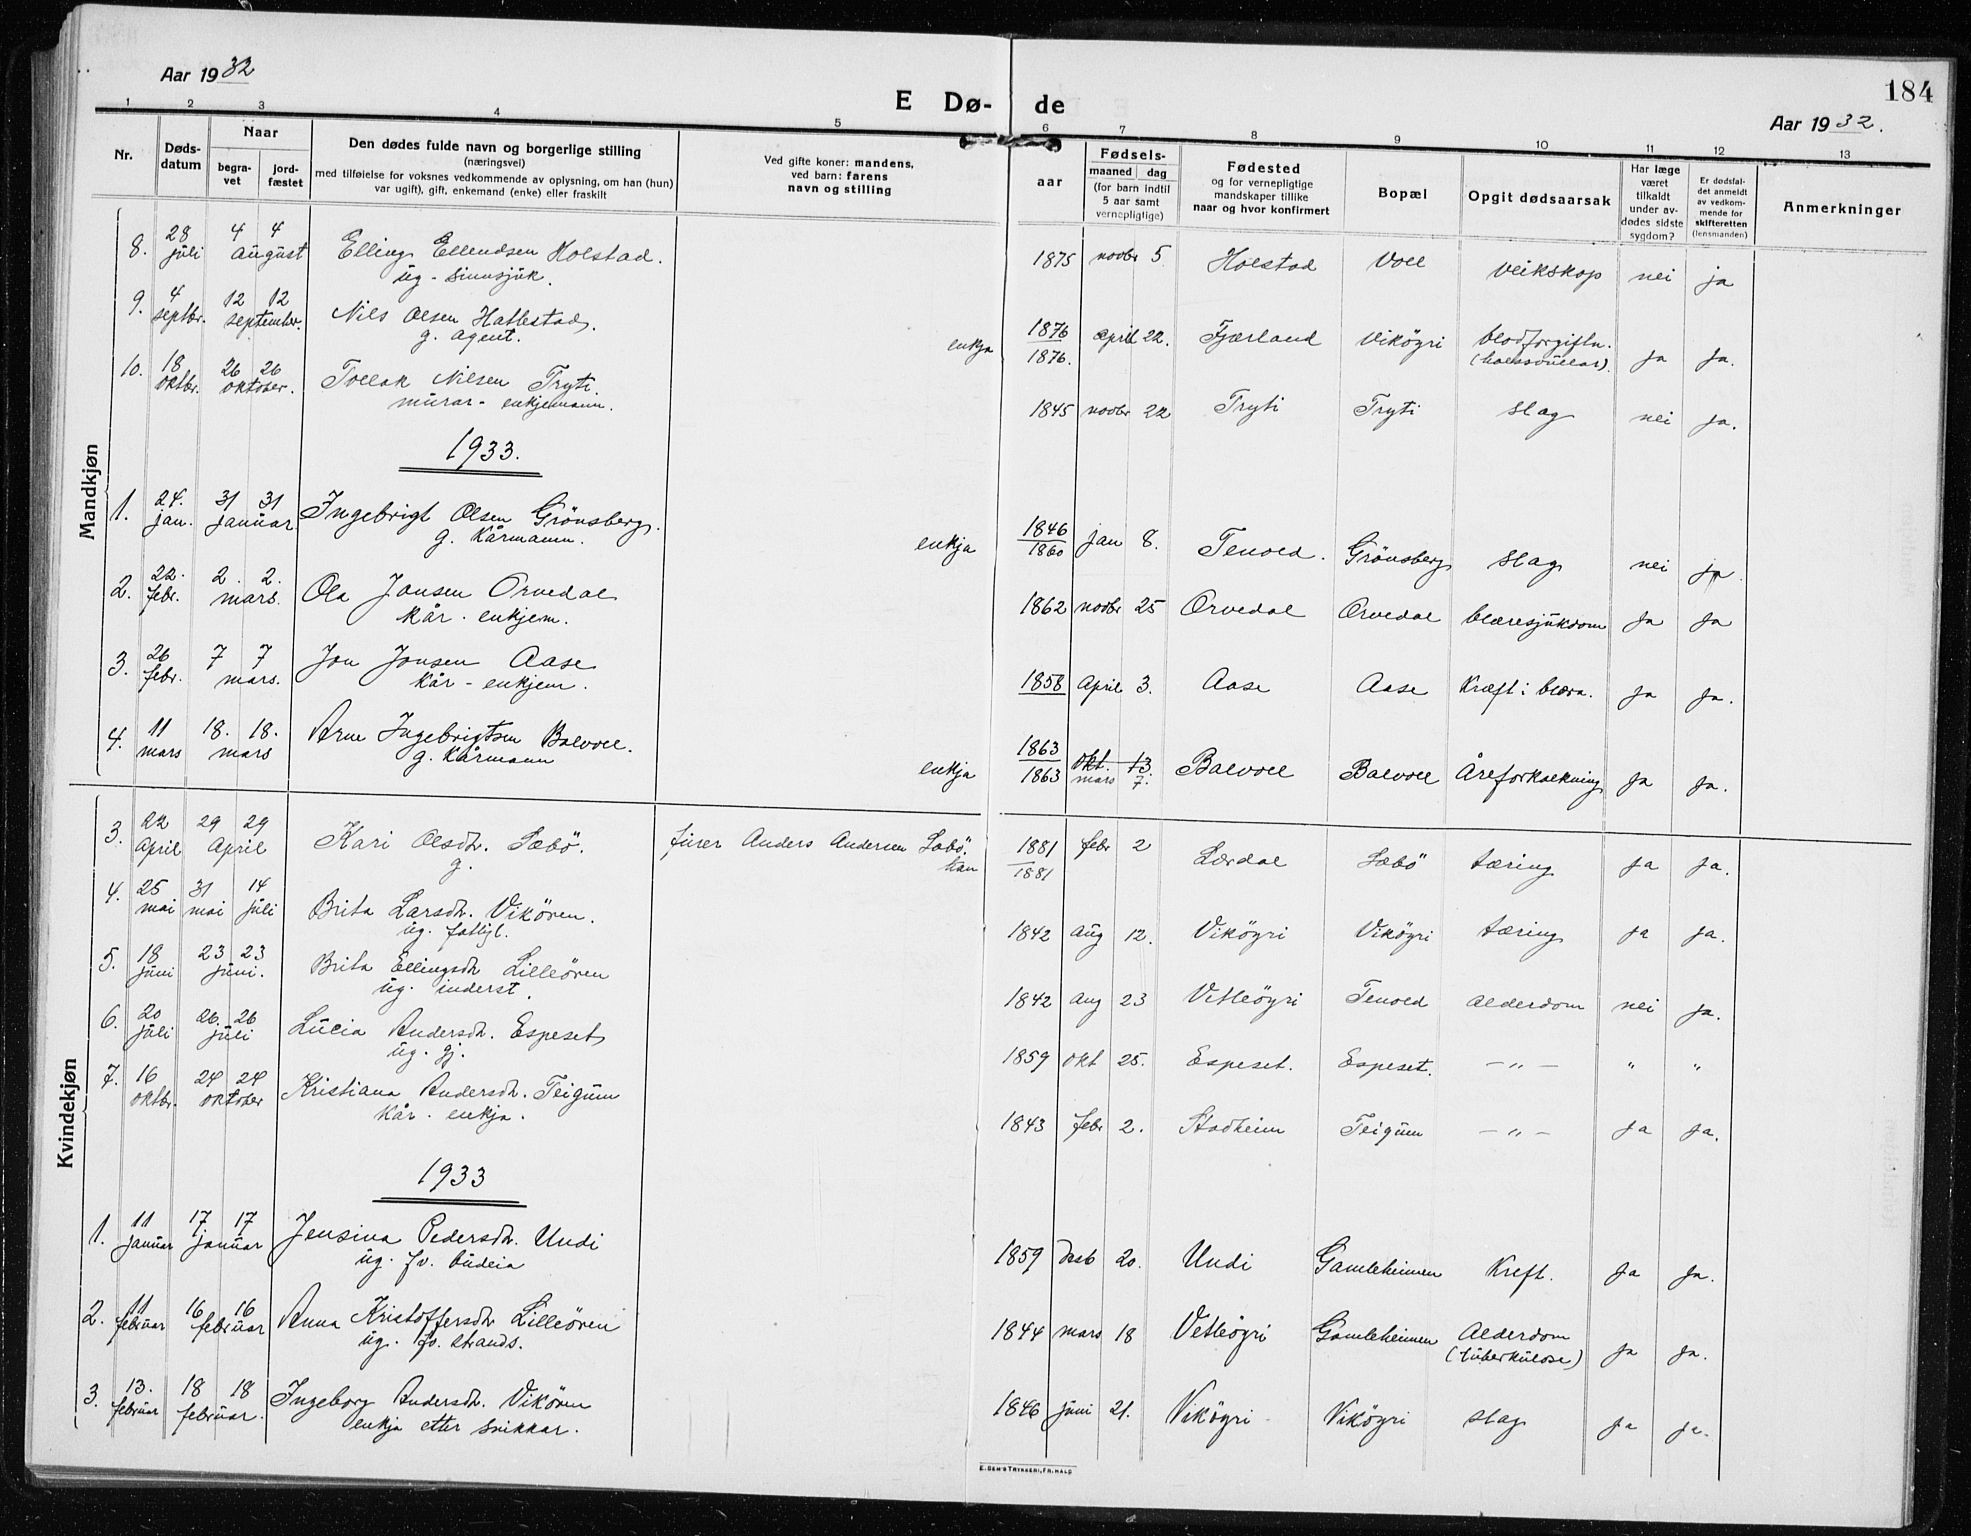 184
Aar 1932
E Dø-
de
Aar 1932.
1 2 3 4 5 6 7 8 9 10 11 12 13
Nr.
Døds-
datum
Naar
begra-
vet
jord-
fæstet
Den dødes fulde navn og borgerlige stilling
(næringsvei)
med tilføielse for voksnes vedkommende av oplysning, om han (hun)
var ugift), gift, enkemand (enke) eller fraskilt
Ved gifte koner: mandens,
ved barn: farens
navn og stilling
Fødsels-
aar
maaned
dag
(for barn indtil
5 aar samt
vernepligtige)
Fødested
og for vernepligtige
mandskaper tillike
naar og hvor konfirmert
Bopæl
Opgit dødsaarsak
Har læge
været
tilkaldt
under av-
dødes sidste
sygdom?
Er dødsfal-
det anmeldt
av vedkom-
mende for
skifteretten
(lensmanden)
Anmerkninger
Mandkjøn
8. 28 juli 4 4 August Elling Ellendsen Holstad. 1875 novbr 5 Holstad Voll veikskap nei ja
ug - sinnsjuk.
9. 4 septbr. 12 12 september. Nils Olsen Hatlestad. enkja 1876 1876. april 22. Fjærland Vikøyri blodforgiftn. ja ja.
g. agent.
10. 18 oktbr. 26 26 oktober. Tollak Nilsen Tryti. 1845 novbr 22 Tryti Tryti slag nei ja.
murar - enkjemann.
1933.
1. 24. jan. 31 31 januar Ingebrigt Olsen Grönsberg. enkja 1846 1860 jan 8. Tenold. Grönsberg slag nei ja.
g. Kårmann.
2. 22. febr. 2. 2. mars. Ola Jonsen Orvedal 1862 novbr 25 Orvedal Orvedal blæresjukdom ja ja
kår - enkjem.
3. 26 febr. 7 7 mars. Jon Jonsen Aase 1858 April 3. Aase Aase Kræft i blæra. ja ja.
kår - enkjem.
4. 11 mars 18. 18. mars Arne Ingebrigtsen Balvoll. enkja 1863 1863 okt. 13. mars 7. Balvoll Balvoll Åreforkalkning ja ja.
g. Kårmann
Kvindekjøn
3. 22 April 29 29 April Kari Olsdtr. Sæbö. furer Anders Andersen Sæbö. han 1881 1881 febr 2 Lærdal Sæbö tæring ja ja.
g.
4. 25 mai 31 mai 14 juli Brita Larsdtr. Vikören. 1842 aug 12. Viköyri Viköyri tæring ja ja.
ug. fattigl.
5. 18 juni 23 23 juni. Brita Ellingsdtr Lilleören 1842 aug 23 Vetleöyri Tenold alderdom nei ja.
ug. inderst.
6. 20 juli 26. 26 juli Lucia Andersdtr. Espeset 1859 okt 25. Espeset. Espeset. - " - " "
ug. gj.
7. 16 oktbr. 24 24 oktober Kristiana Andersdtr. Teigum 1843 febr 2. Stadheim Teigum - " - ja ja.
kår - enkja.
1933
1. 11 januar 17 17 januar Jensina Pedersdtr. Undi 1859 desb 20. Undi Gamleheimen Kreft. ja ja.
ug. fv. budeia
2. 11 februar 16 16 februar Anna Kristoffersdtr Lilleören 1844 mars 18 Vetleöyri Gamleheimen Alderdom (tuberkulose) ja ja.
ug. fv. strands.
3. 13. februar 18 18 februar. Ingeborg Andersdtr. Vikören 1846 juni 21. Viköyri Viköyri slag ja ja.
enkja etter snikkar.
E. SEM'S TRYKKERI, FR. HALD